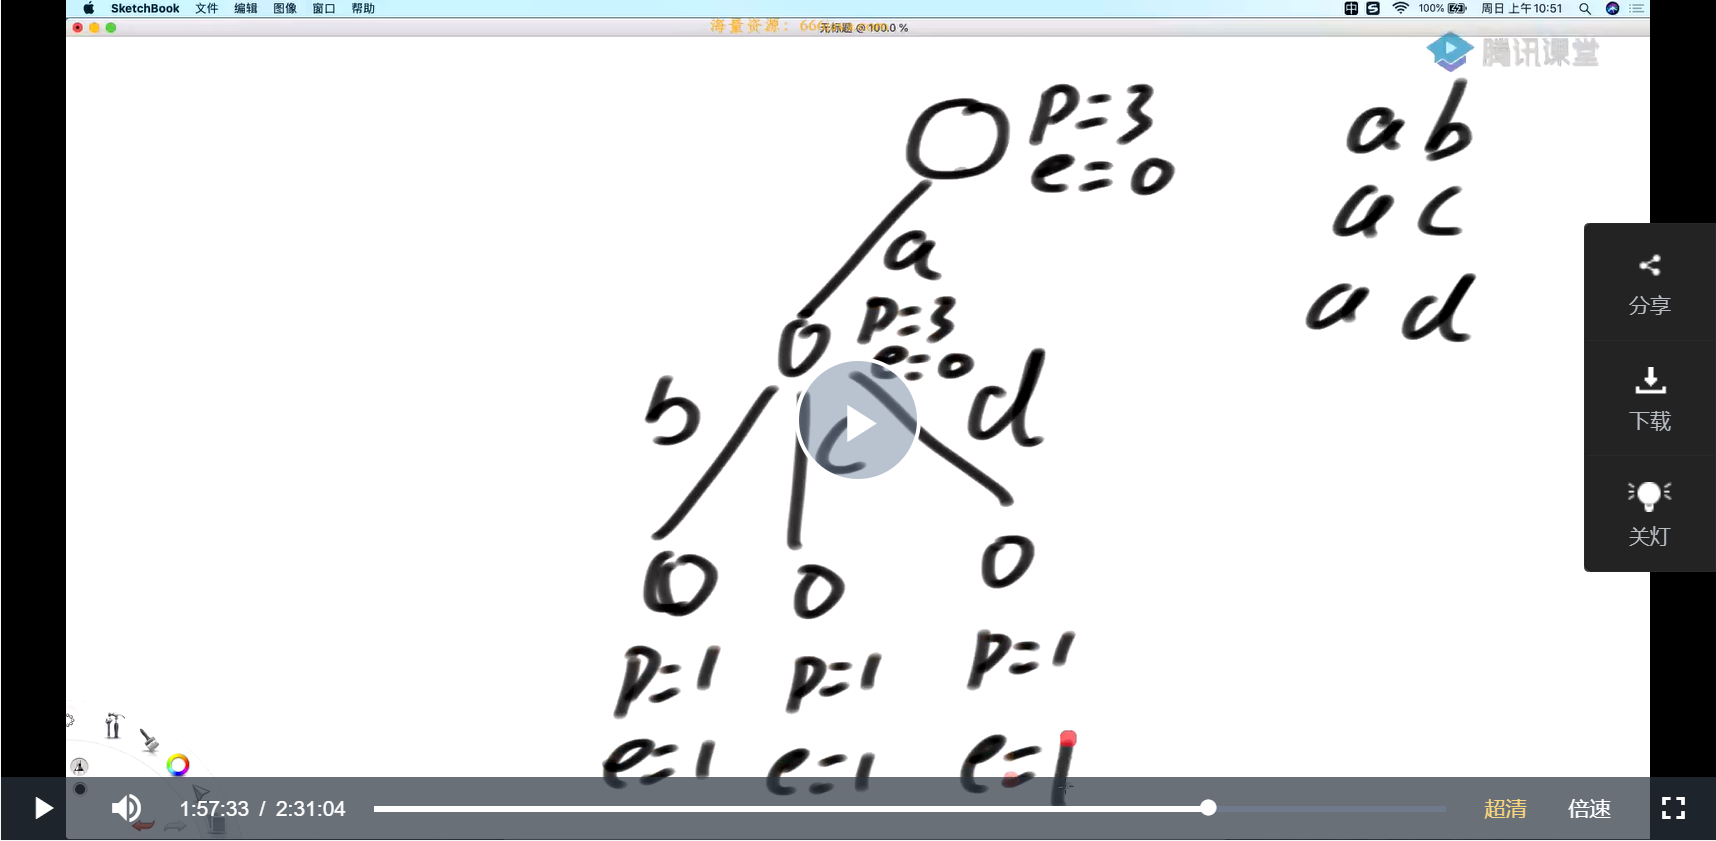 SketchBook 文件 编辑 图像 窗口 帮助 100% 周日 上午10:51
海量资源：666
无标题 @ 100.0 %
腾讯课堂
p=3
e=0
a b
a c
a d
a
p=3
e=0
b
c
d
p=1 p=1 p=1
e=1 e=1 e=1
分享
下载
关灯
1:57:33 / 2:31:04 超清 倍速